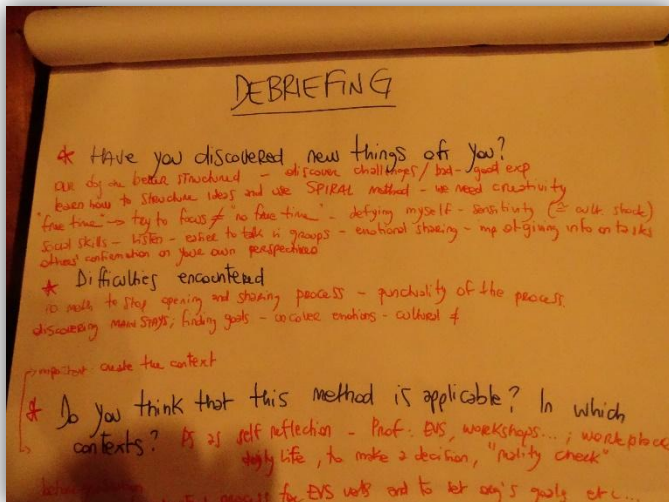 DEBRIEFING
* HAVE you discovered new things of you?
our day are better structured - discover challenges / bad - good exp
learn how to structure ideas and use SPIRAL method - we need creativity
"free time" → try to focus ≠ "no free time" - defying myself - sensitivity (= cult shock)
social skills - listen - easier to talk in groups - emotional sharing - imp of giving info on tasks
others' confirmation on your own perspectives
* Difficulties encountered
to to stop opening and sharing process - punctuality of the process
discovering MAIN STAYS; finding goals - emotions - cultural ≠
important: create the context
* Do you think that this method is applicable? In which
contexts? as self reflection - Prof: EVS, workshops...; workplace
daily life, to make a decision, "reality check"
process for EVS and to set goals etc...